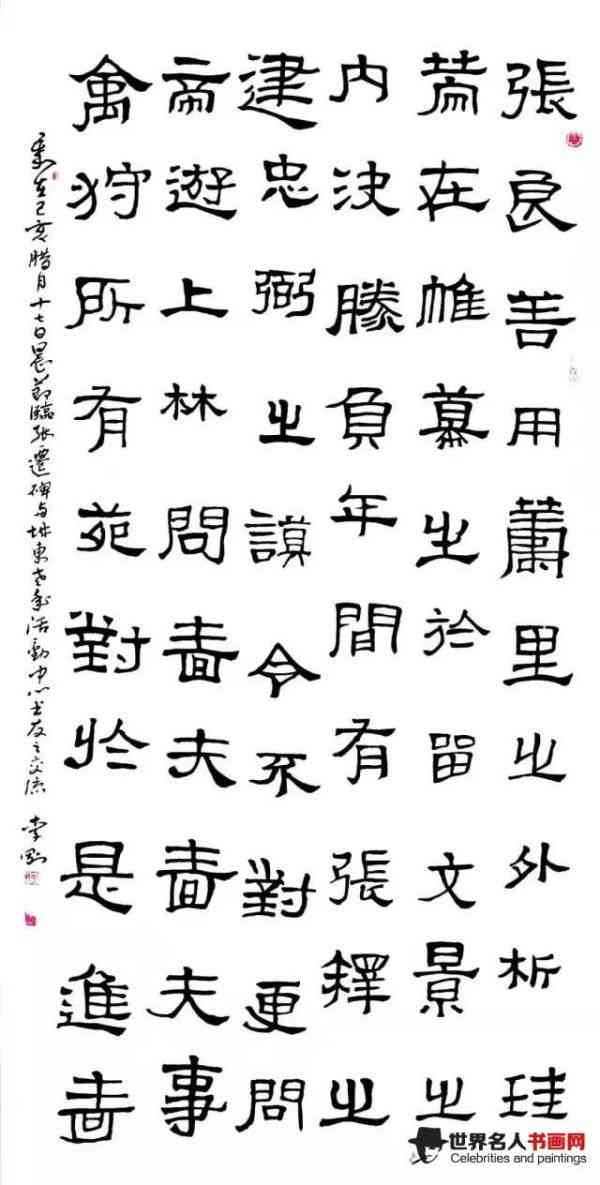 張良善用籌里之外析珪
策在帷幕之於留文景之
內決勝負年間有張釋之
建忠弼之謨令不對更問
帝遊上林問嗇夫嗇夫事
禽狩所有苑對於是進嗇
歲在己亥臘月十七日晨節臨張遷碑与城東老年活動中心书友之交流 李剛
世界名人书画网
Celebrities and paintings